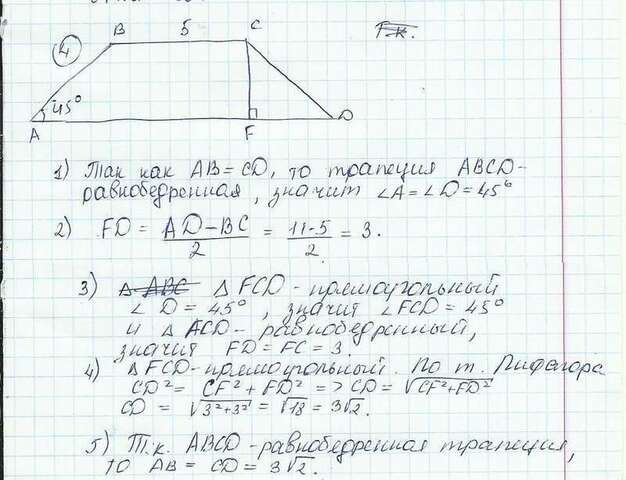 B 5 C
Т.к.
4
45°
A F D
1) Так как AB = CD, то трапеция ABCD-
равнобедренная, значит ∠A = ∠D = 45°
2) FD = (AD - BC)/2 = (11-5)/2 = 3.
3) Δ ABC Δ FCD - прямоугольный
∠ D = 45°, значит ∠FCD = 45°
и Δ ACD - равнобедренный,
значит FD = FC = 3.
4) Δ FCD - прямоугольный. По т. Пифагора
CD² = CF² + FD² => CD = √(CF² + FD²)
CD = √(3² + 3²) = √18 = 3√2.
5) Т.к. ABCD - равнобедренная трапеция,
то AB = CD = 3√2.